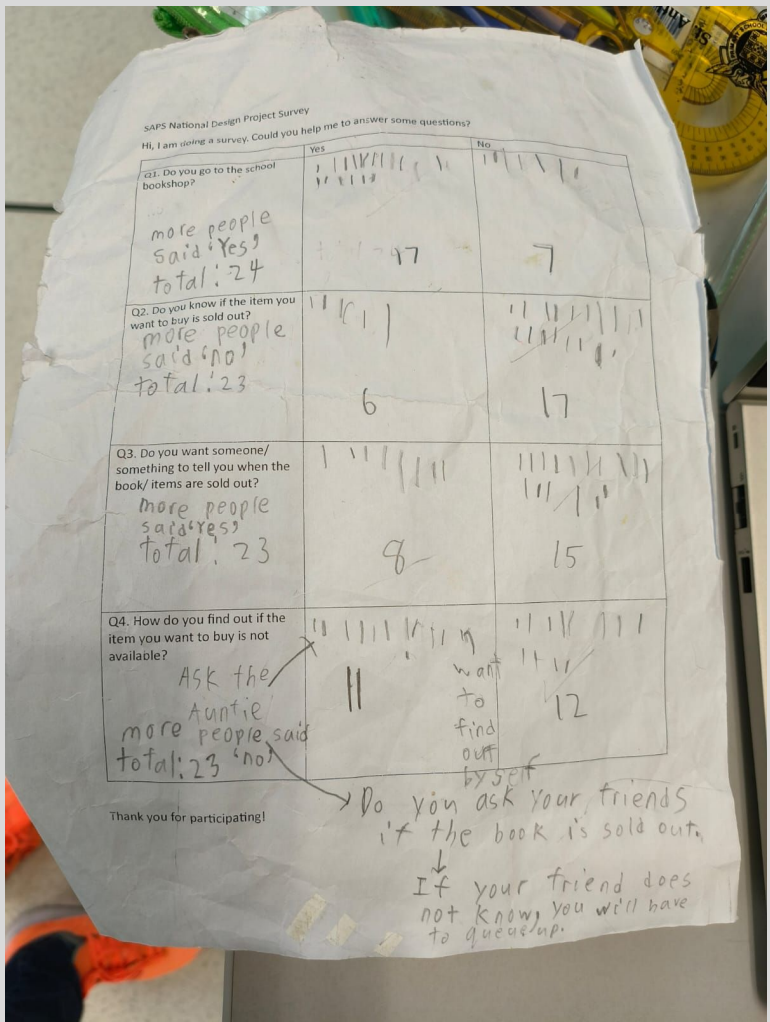 St. Ant
PRIMARY SCHOOL
SAPS National Design Project Survey
Hi, I am doing a survey. Could you help me to answer some questions?
Yes
No
Q1. Do you go to the school
bookshop?
more people
said 'Yes'
total: 24
17
7
Q2. Do you know if the item you
want to buy is sold out?
more people
said 'no'
total: 23
6
17
Q3. Do you want someone/
something to tell you when the
book/ items are sold out?
more people
said 'Yes'
total: 23
8
15
Q4. How do you find out if the
item you want to buy is not
available?
Ask the
Auntie
more people said
total: 23 'no'
11
want
to
find
out
by self
12
Do you ask your friends
if the book is sold out.
If your friend does
not know, you will have
to queue up.
Thank you for participating!